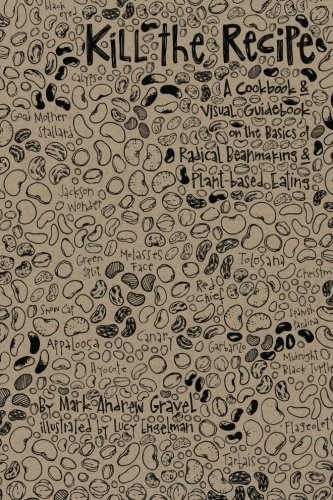 Black
eye
Kill the Recipe
Calypso
A Cookbook &
Visual Guidebook
on the Basics of
Radical Beanmaking &
Plant-based Eating
Mother
Stallard
Jackson
Wonder
Green
Split
Molasses
Face
Tolosana
Christmas
Red
Chief
Snow Cap
Spanish
Pardina
Appaloosa
Canary
Garbanzo
Midnight
Black Turtle
Ayocote
By Mark Andrew Gravel
illustrated by Lucy Engelman
Flageolet
Tarbais